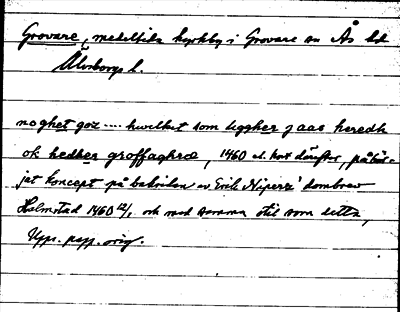 Grovare, medeltida kyrkby i Grovare sn Ås hd
Älvsborgs l.
noghet goz .... hwilket som liggher j aas heredh
ok hedher groffaghræ, 1460 el. kort därefter, påbör-
jat koncept på baksidan av Erik Nipertz' dombrev
Halmstad 1460 12/1 och med samma stil som detta,
Upps. papp. orig.